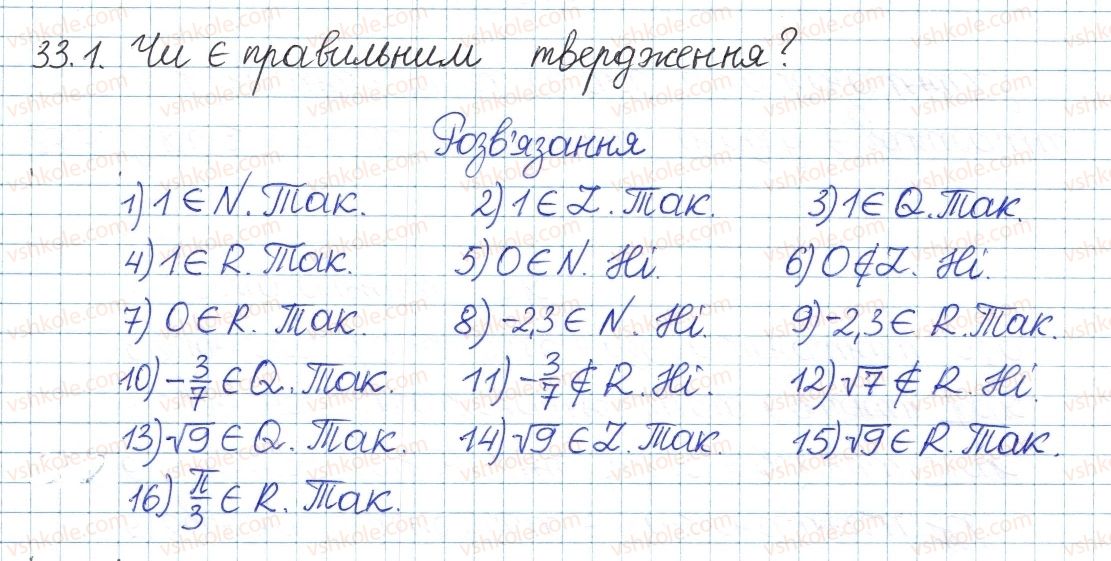 33.1. Чи є правильним твердження?
Розв'язання
1) 1 ∈ N. Так. 2) 1 ∈ Z. Так. 3) 1 ∈ Q. Так.
4) 1 ∈ R. Так. 5) 0 ∈ N. Ні. 6) 0 ∉ Z. Ні.
7) 0 ∈ R. Так. 8) -2,3 ∈ N. Ні. 9) -2,3 ∈ R. Так.
10) -3/7 ∈ Q. Так. 11) -3/7 ∉ R. Ні. 12) √7 ∉ R. Ні.
13) √9 ∈ Q. Так. 14) √9 ∈ Z. Так. 15) √9 ∈ R. Так.
16) π/3 ∈ R. Так.
vshkole.com